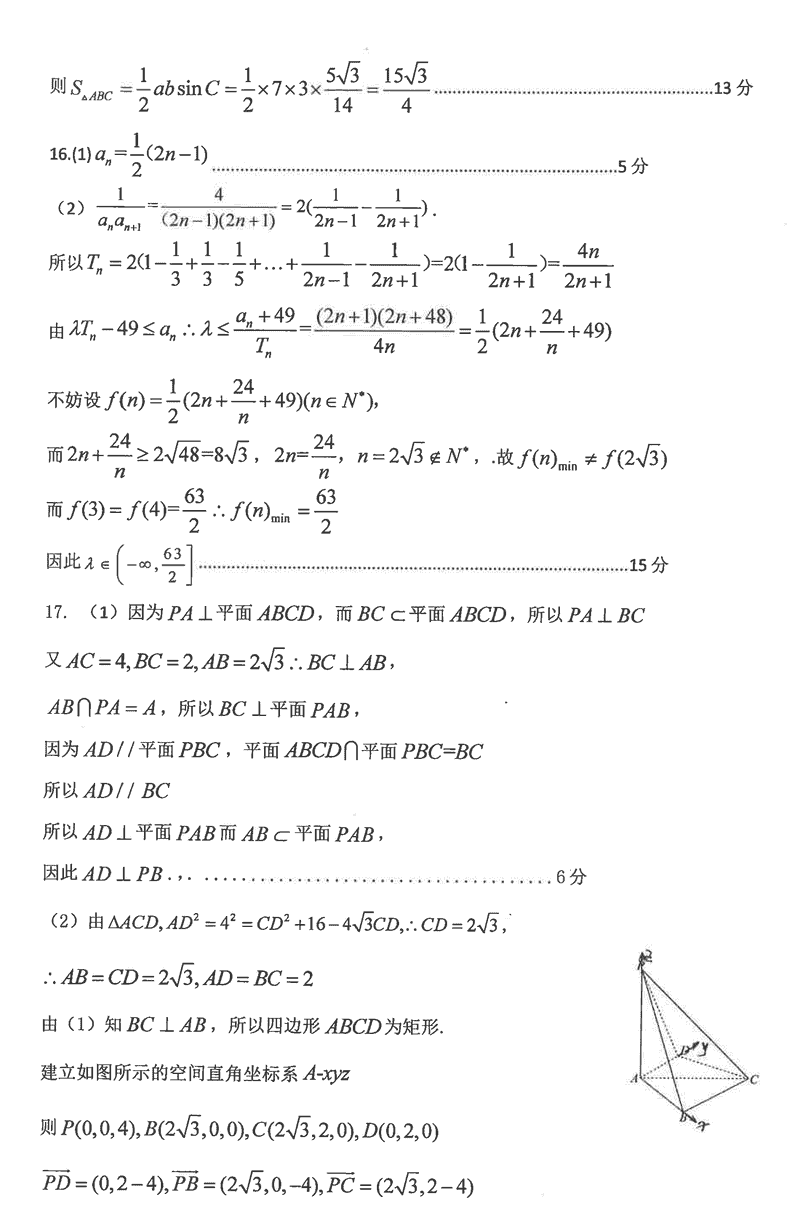 则 $S_{\triangle ABC}=\frac{1}{2}ab\sin C=\frac{1}{2}\times 7\times 3\times\frac{5\sqrt{3}}{14}=\frac{15\sqrt{3}}{4}$ ......13 分
16.(1) $a_n=\frac{1}{2}(2n-1)$ ......5 分
(2) $\frac{1}{a_n a_{n+1}}=\frac{4}{(2n-1)(2n+1)}=2(\frac{1}{2n-1}-\frac{1}{2n+1})$.
所以 $T_n=2(1-\frac{1}{3}+\frac{1}{3}-\frac{1}{5}+...+\frac{1}{2n-1}-\frac{1}{2n+1})=2(1-\frac{1}{2n+1})=\frac{4n}{2n+1}$
由 $\lambda T_n-49\le a_n\therefore\lambda\le\frac{a_n+49}{T_n}=\frac{(2n+1)(2n+48)}{4n}=\frac{1}{2}(2n+\frac{24}{n}+49)$
不妨设 $f(n)=\frac{1}{2}(2n+\frac{24}{n}+49)(n\in N^*)$,
而 $2n+\frac{24}{n}\ge 2\sqrt{48}=8\sqrt{3}$，$2n=\frac{24}{n}$，$n=2\sqrt{3}\notin N^*$，.故 $f(n)_{\min}\ne f(2\sqrt{3})$
而 $f(3)=f(4)=\frac{63}{2}\therefore f(n)_{\min}=\frac{63}{2}$
因此 $\lambda\in\left(-\infty,\frac{63}{2}\right]$ ......15 分
17. (1) 因为 PA⊥平面 ABCD，而 BC⊂平面 ABCD，所以 PA⊥BC
又 $AC=4,BC=2,AB=2\sqrt{3}\therefore BC\perp AB$，
AB∩PA=A，所以 BC⊥平面 PAB，
因为 AD//平面 PBC，平面 ABCD∩平面 PBC=BC
所以 AD// BC
所以 AD⊥平面 PAB 而 AB⊂平面 PAB，
因此 AD⊥PB.,. ......6 分
(2) 由 $\Delta ACD,AD^2=4^2=CD^2+16-4\sqrt{3}CD,\therefore CD=2\sqrt{3}$，
$\therefore AB=CD=2\sqrt{3},AD=BC=2$
由 (1) 知 BC⊥AB，所以四边形 ABCD 为矩形.
建立如图所示的空间直角坐标系 A-xyz
则 $P(0,0,4),B(2\sqrt{3},0,0),C(2\sqrt{3},2,0),D(0,2,0)$
$\overrightarrow{PD}=(0,2-4),\overrightarrow{PB}=(2\sqrt{3},0,-4),\overrightarrow{PC}=(2\sqrt{3},2-4)$
z
P
D y
A C
B x